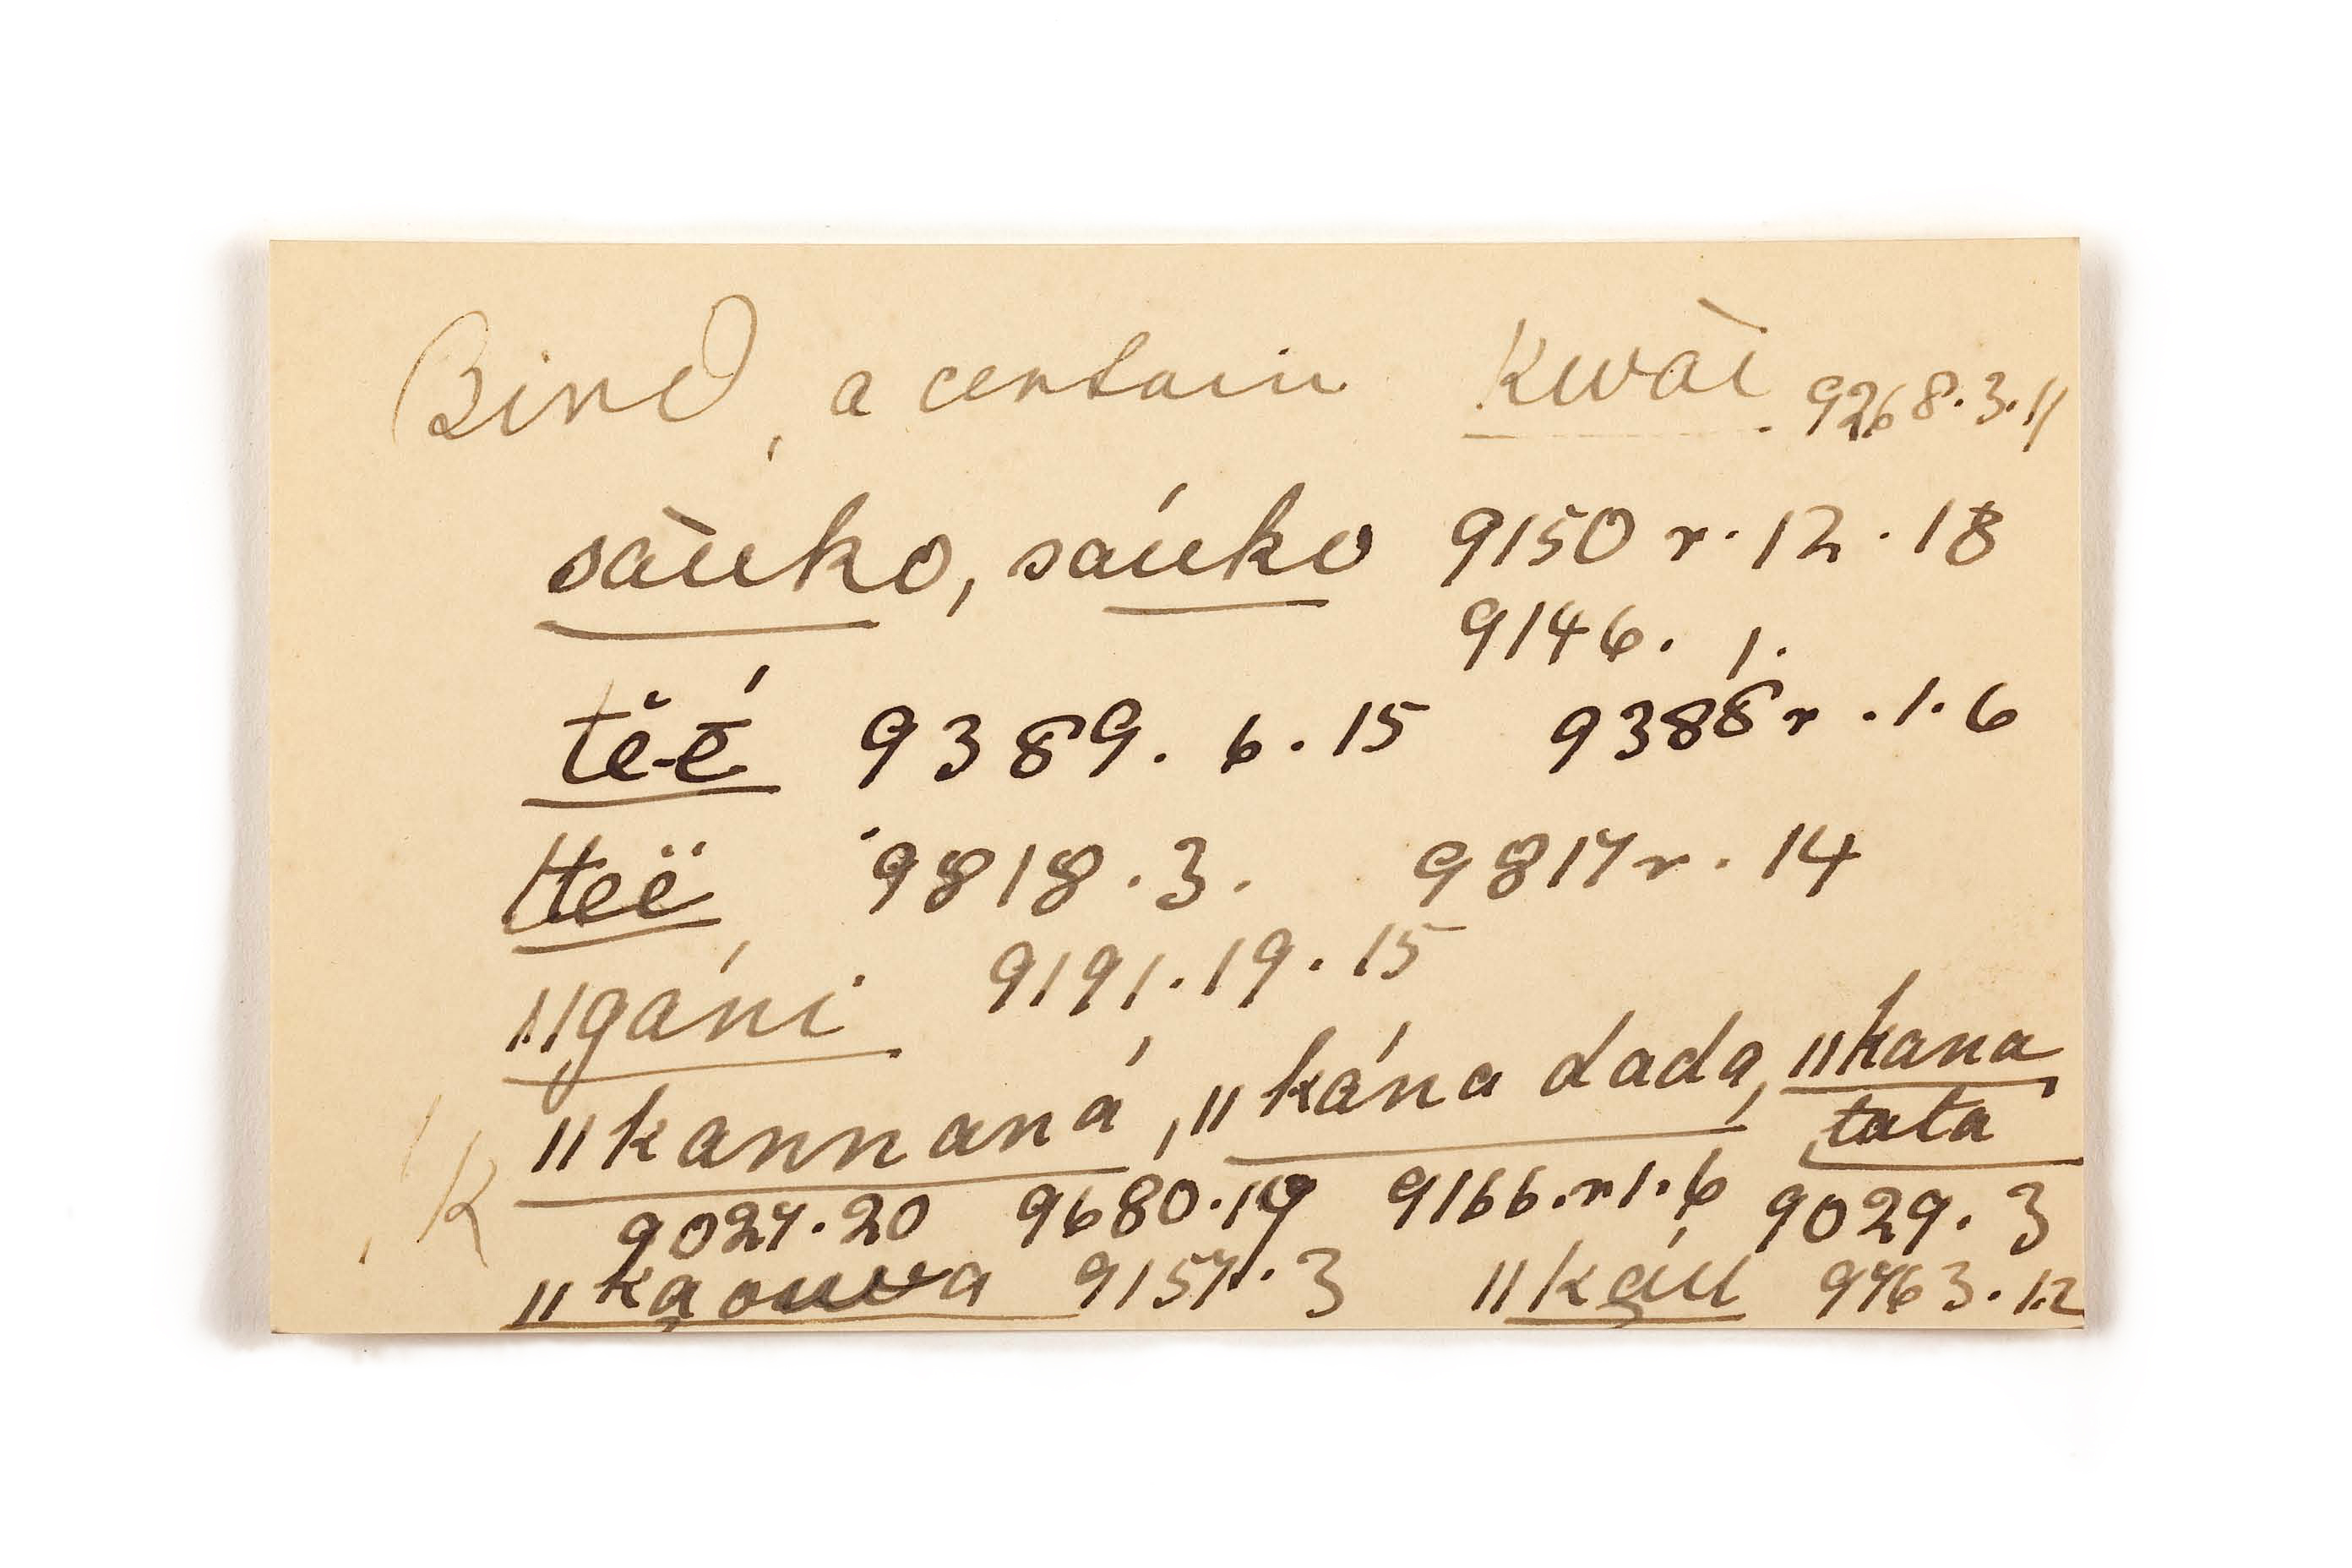 Bird, a certain kwài. 9268.3.11
sàuko, sáuko 9150 r. 12. 18
9146. 1.
tĕ-ḗ 9389. 6. 15 9388 r. 1. 6
ǀteë 9818. 3. 9817 r. 14
ǁgáni 9191. 19. 15
ǁkannaná, ǁkána dada, ǁkana
tata
K 9027.20 9680.19 9166.r1.6 9029.3
ǁkạouwa 9157.3 ǁkạú 9763.12